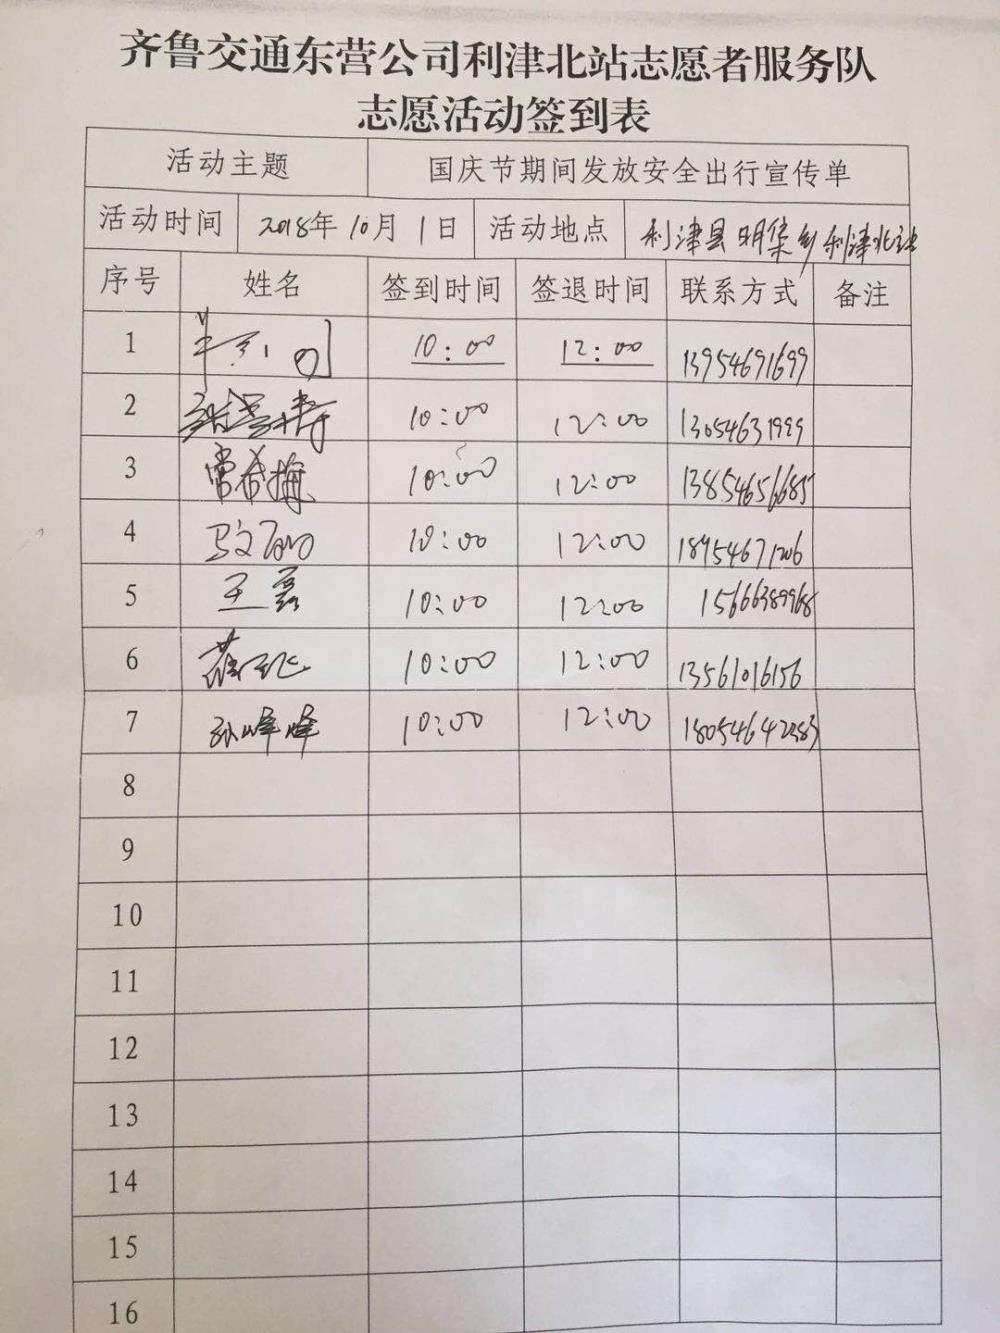 齐鲁交通东营公司利津北站志愿者服务队
志愿活动签到表
活动主题 国庆节期间发放安全出行宣传单
活动时间 2018年10月1日 活动地点 利津县明集乡利津北站
序号 姓名 签到时间 签退时间 联系方式 备注
1 10:00 12:00 13954691699
2 10:00 12:00 13054631999
3 常希梅 10:00 12:00 13854656685
4 10:00 12:00 18954671206
5 王磊 10:00 12:00 15666389968
6 10:00 12:00 13561016156
7 孙峰峰 10:00 12:00
8
9
10
11
12
13
14
15
16